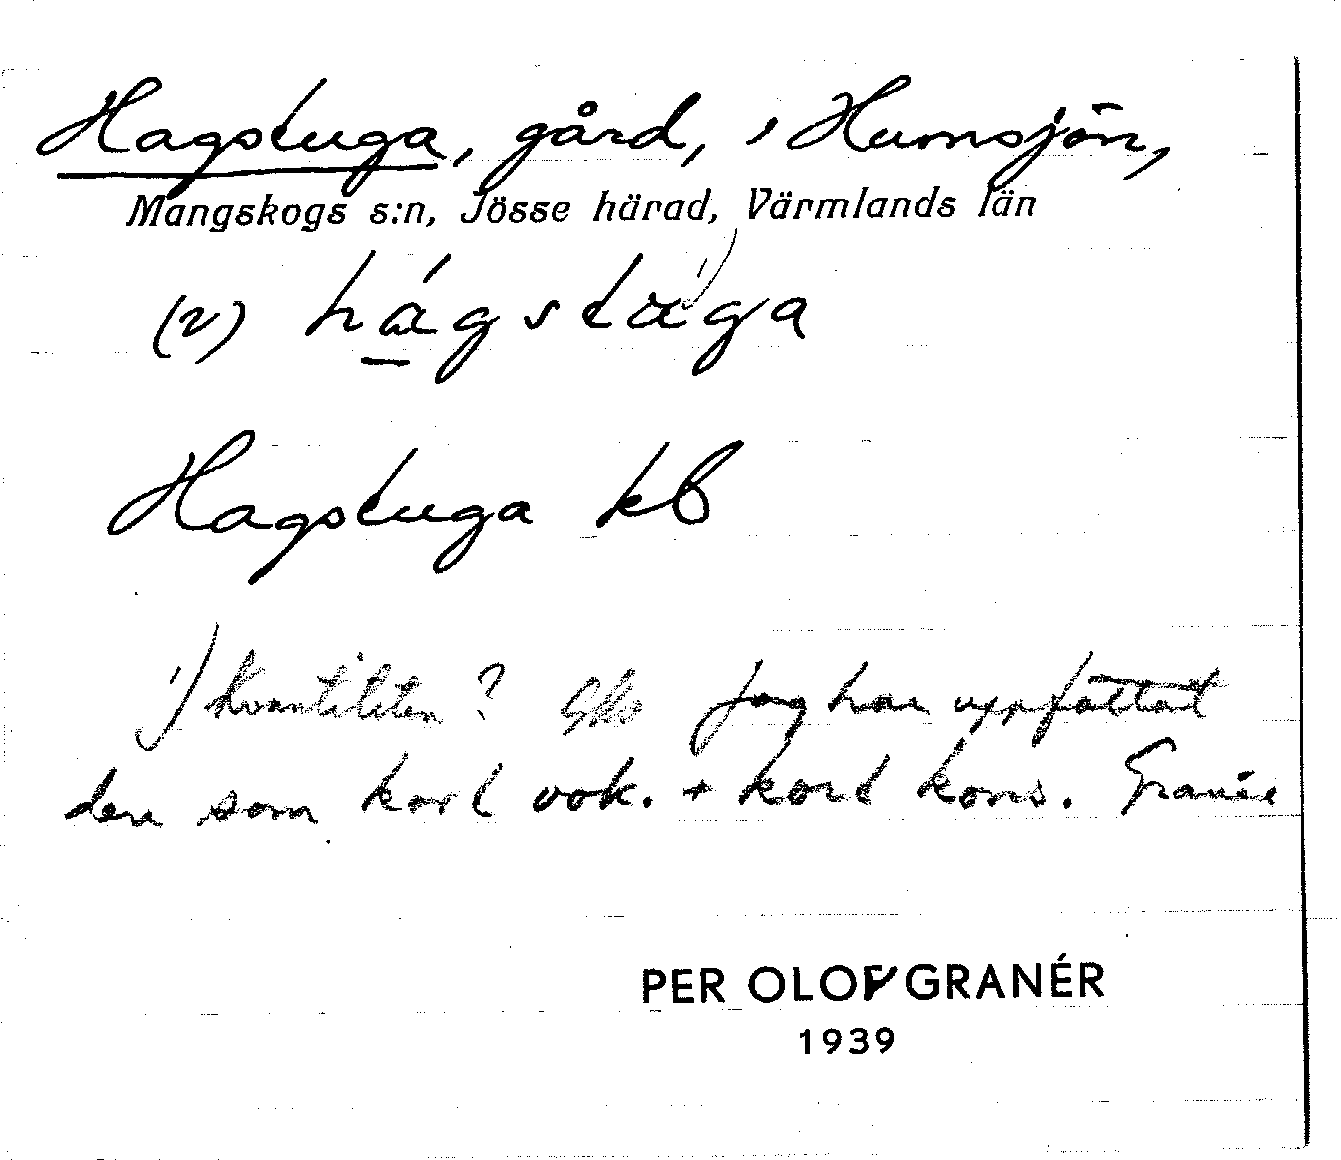 Hagstuga, gård, i Humsjön,
Mangskogs s:n, Jösse härad, Värmlands län
(2) hágstùga 1)
Hagstuga kb
1) Kvantiteten? Jag har uppfattat
den som kort vok. + kort kons. Granér
PER OLOF GRANÉR
1939